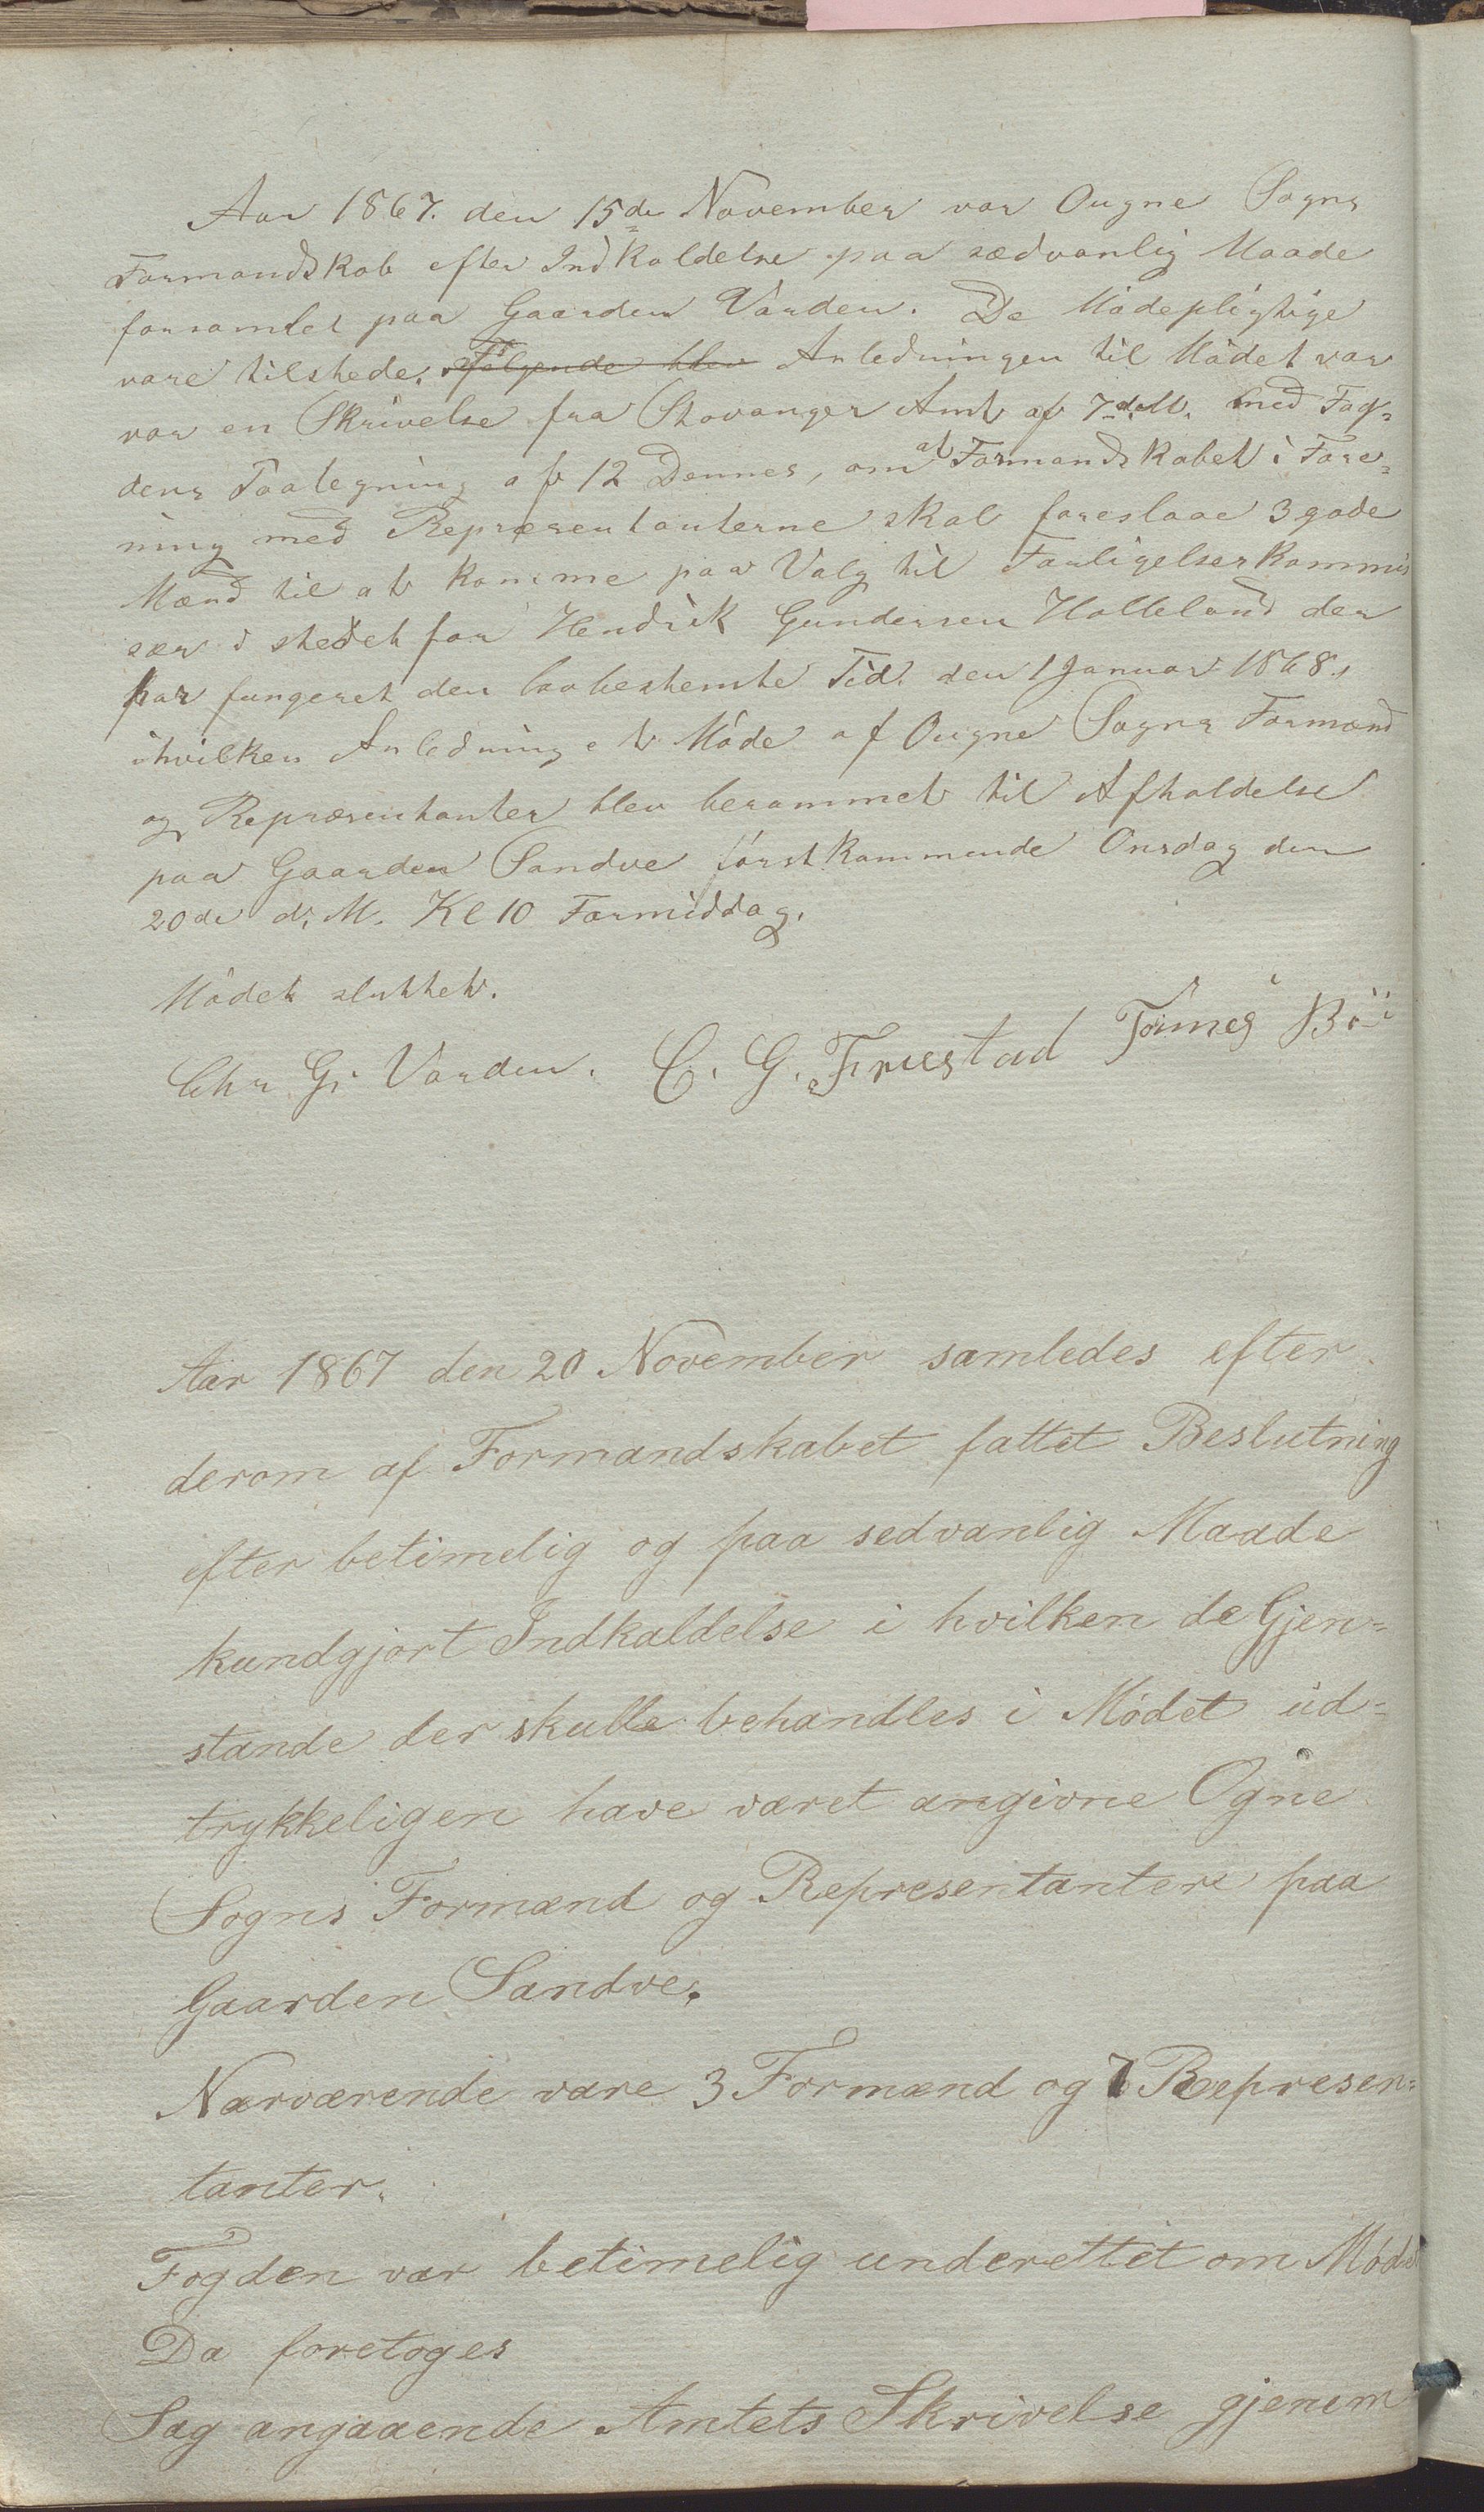 Aar 1867. den 15de November var Ougne Sogns
Formandskab efter Indkaldelse paa sædvanlig Maade
forsamlet paa Gaarden Varden. De Mødepligtige
vare tilstede. Følgende blev Anledningen til Mødet var
var en Skrivelse fra Stavanger Amt af 7 d. M. med Fog-
dens Paategning af 12 Dennes, om at Formandskabet i Fore-
ning med Repræsentanterne skal foreslaae 3 gode
Mænd til at komme paa Valg til Forligelseskommis
sær i stedet for Hendrik Gundersen Holleland der
har fungeret den lovbestemte Tid. den 1 Januar 1868.,
i hvilken Anledning et Møde af Ougne Sogns Formænd
og Repræsentanter blev berammet til Afholdelse
paa Gaarden Sandve førstkommende Onsdag den
20de d. M. Kl 10 Formiddag.
Mødet sluttet.
Chr G. Varden. C. G. Fruestad Tønnes Bø
Aar 1867 den 20 November samledes efter
derom af Formandskabet fattet Beslutning
efter betimelig og paa sedvanlig Maade
kundgjort Indkaldelse i hvilken de Gjen-
stande der skulle behandles i Mødet ud-
trykkeligen have været angivne Ogne
Sogns Formænd og Represententere paa
Gaarden Sandve.
Nærværende vare 3 Formænd og 7 Represen-
tanter.
Fogden var betimelig underettet om Mødet
Da foretoges
Sag angaaende Amtets Skrivelse gjenem